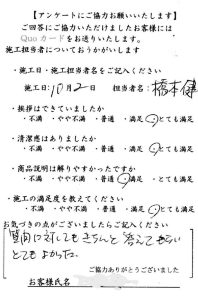 【アンケートにご協力お願いいたします】
ご回答にご協力いただけましたお客様には
Quoカードをお送りいたします。
施工担当者についておうかがいします
・施工日・施工担当者名をご記入ください
施工日:10月2日 担当者名:橋本健
・挨拶はできていましたか
・不満 ・やや不満 ・普通 ・満足 ・とても満足
・清潔感はありましたか
・不満 ・やや不満 ・普通 ・満足 ・とても満足
・商品説明は解りやすかったですか
・不満 ・やや不満 ・普通 ・満足 ・とても満足
・施工の満足度を教えてください
・不満 ・やや不満 ・普通 ・満足 ・とても満足
お気づきの点がございましたらご記入ください
質問に対してもきちんと答えてもらい
とてもよかった。
ご協力ありがとうございました
お客様氏名